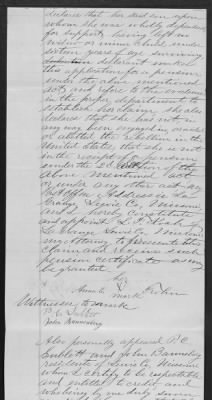 declares that her said son upon
whom she was wholly dependent
for support, having left no
widow or minor child under
sixteen years of age surviving
declarant makes
this application for a pension
under the above mentioned
acts and refers to the evidence
in the proper department to
establish her claim. She also
declares that she has not in
any way been engaged in, or aided
or abetted the rebellion in the
United States, that she is not
in the receipt of a pension
under the 2d section of the
above mentioned act
or under any other act, my
Post Office address is La
Grange, Lewis Co, Missouri,
and I hereby constitute
and appoint
La Grange Lewis Co, Missouri
my attorney to prosecute this
claim and receive such
pension certificate as may
be granted.
her
Anna
mark
Witnesses to mark
P. C.
John
Also personally appeared P. C.
and John
residents of Lewis Co, Missouri
whom I certify to be respectable
and entitled to credit and
who being by me duly sworn